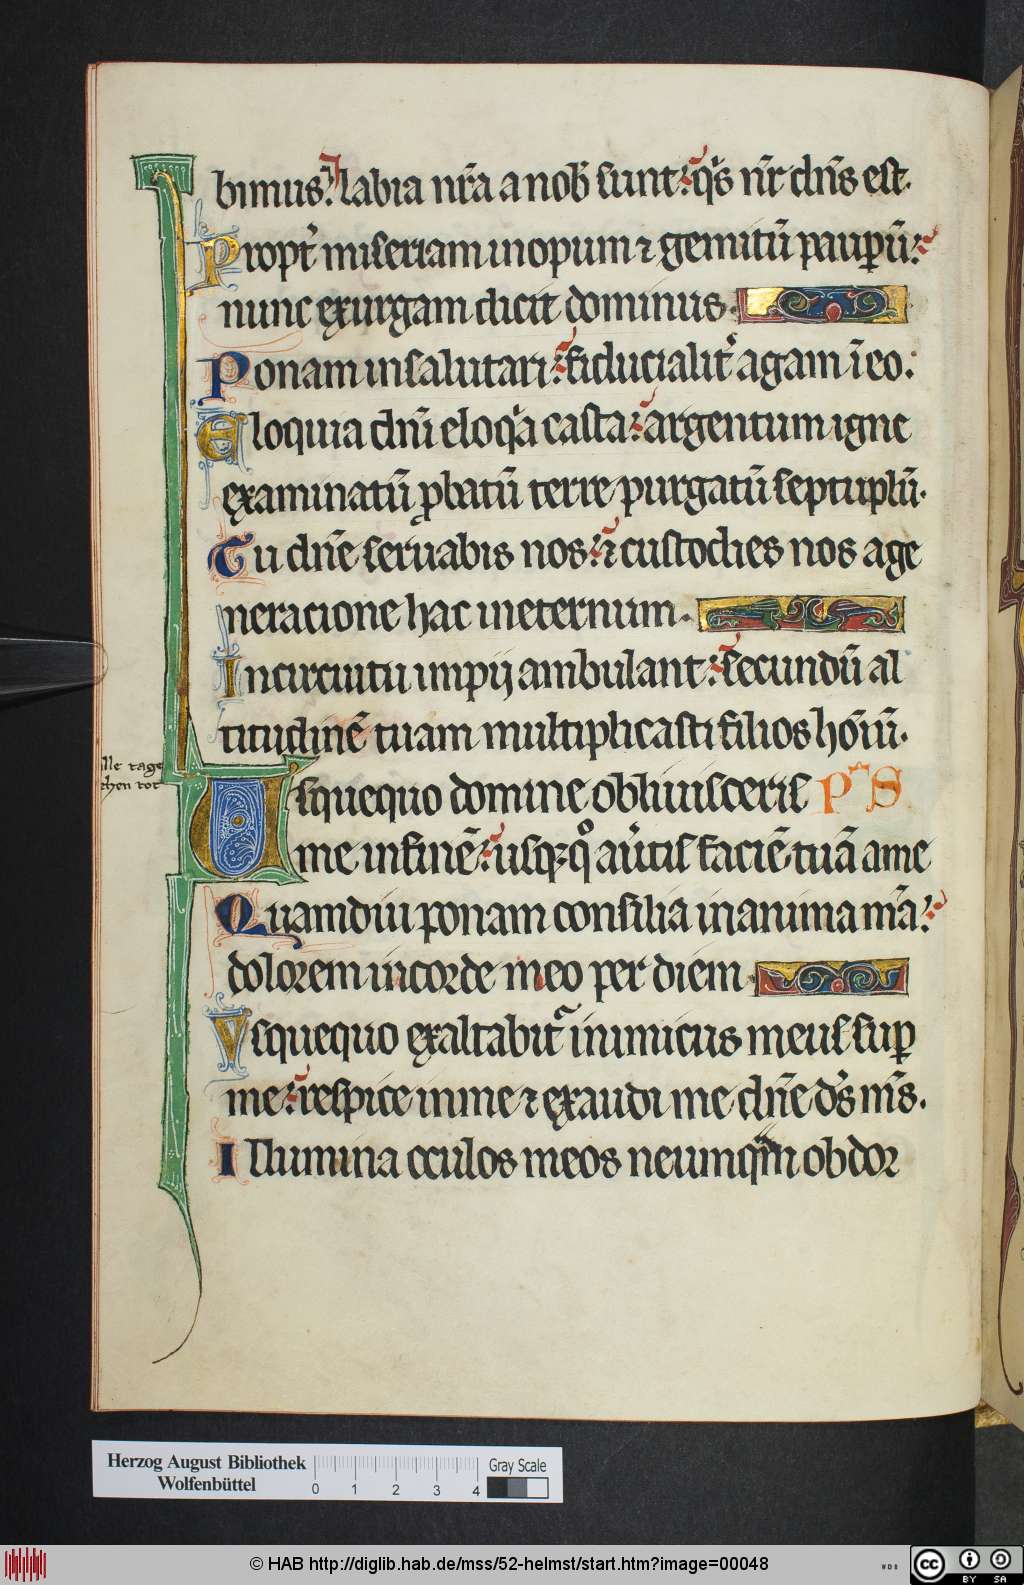 bimus labia nr̄a a nob̄ sunt: q̾s nr̄ dn̄s est.
Propt̾ miseriam inopum ⁊ gemitū pauꝑū:
nunc exurgam dicit dominus.
Ponam in salutari: fiducialit̾ agam ī eo:
Eloquia dn̄i eloqͣ casta: argentum igne
examinatū ꝓbatū terre purgatū septuplū.
Tu dn̄e seruabis nos: ⁊ custodies nos age
neracione hac ineternum.
Incircuitu impij ambulant: secundū al
titudinē tuam multiplicasti filios hoīū.
lle tage
chen tot
Usquequo domine obliuisceris Pˢ S
me infinē: usq̨qͦ au̾tis faciē tuā a me
Quamdiu ponam consilia in anima mͣa:
dolorem in corde meo per diem
Vsquequo exaltabit᷑ inimicus meus suꝑ
me: respice in me ⁊ exaudi me dn̄e ds̄ ms̄.
Illumina oculos meos ne umqͣm obdor
Herzog August Bibliothek
Wolfenbüttel
0 1 2 3 4
Gray Scale
© HAB http://diglib.hab.de/mss/52-helmst/start.htm?image=00048
WDB
cc BY SA